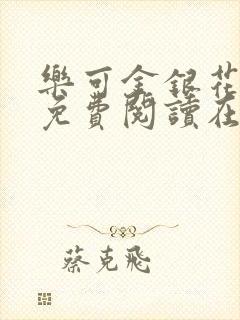 樂可金銀花
免費閱讀在
蔡克飛